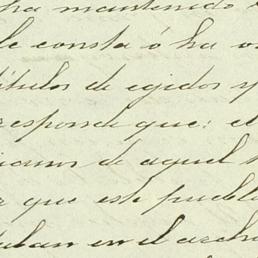 ha mantenido
le consta ó ha o
títulos de egidos y
responde que: el
de aquel
que este pueblo
en el archi